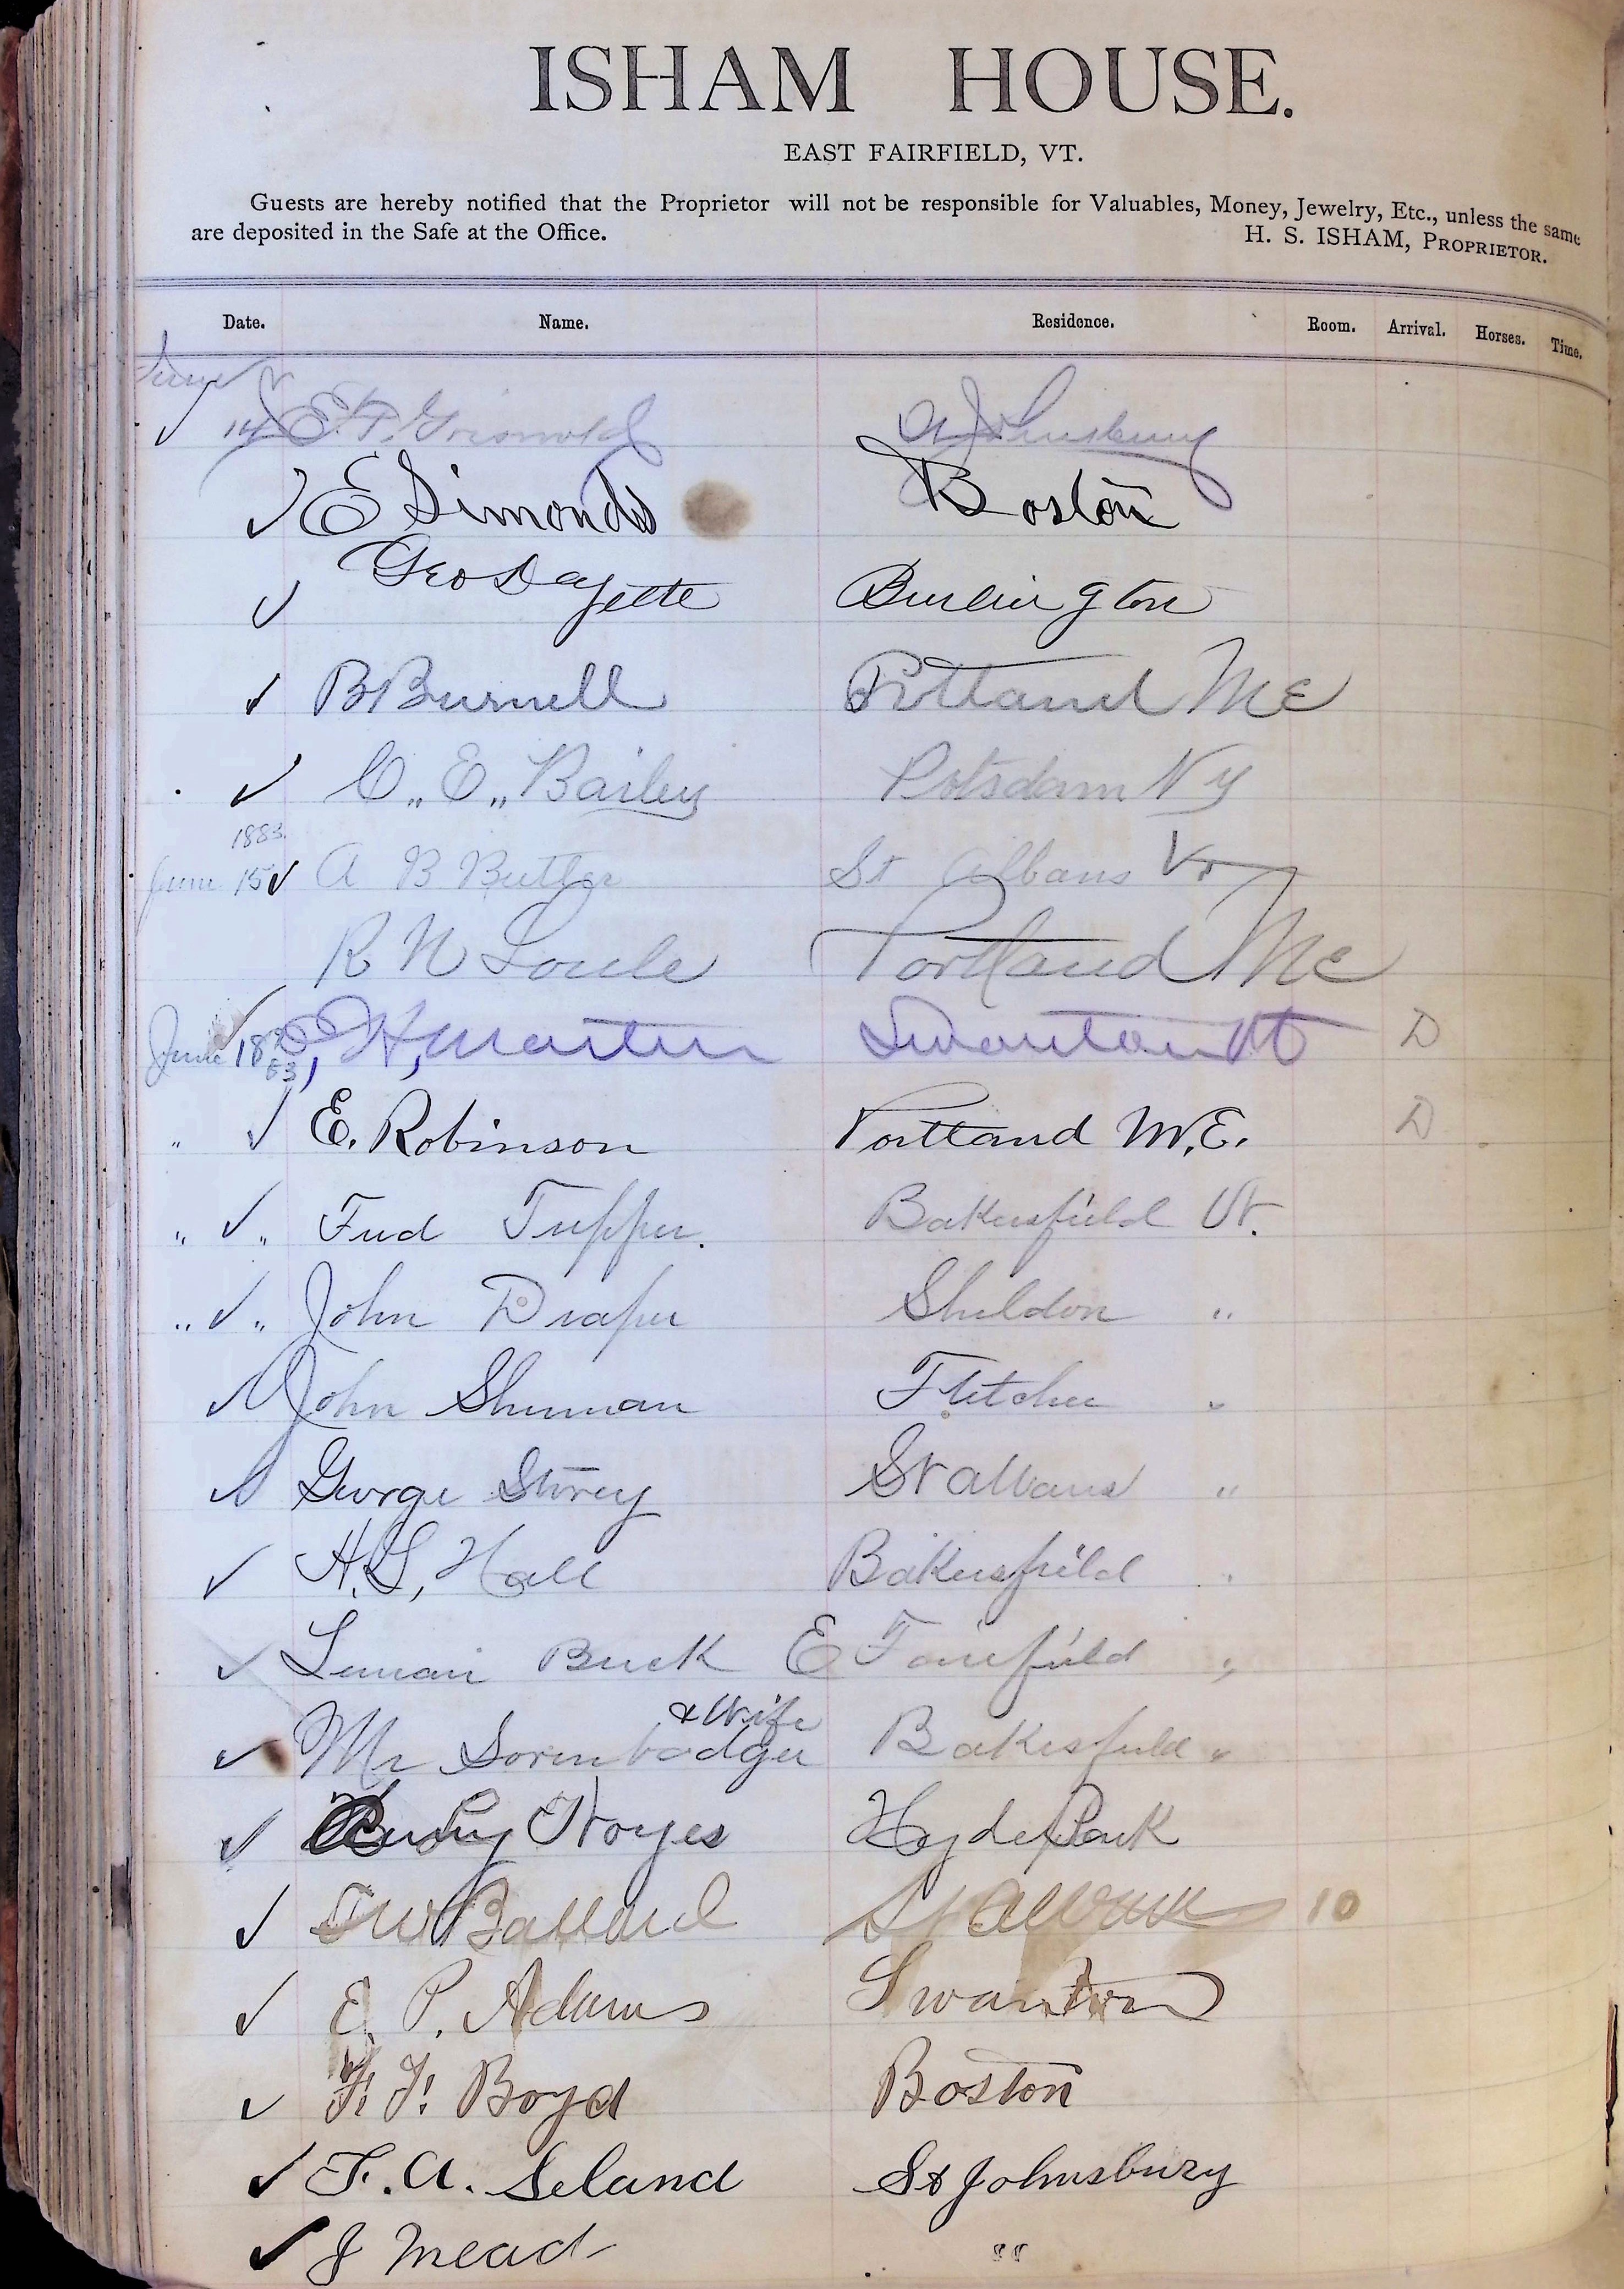 ISHAM HOUSE.
EAST FAIRFIELD, VT.
Guests are hereby notified that the Proprietor will not be responsible for Valuables, Money, Jewelry, Etc., unless the same
are deposited in the Safe at the Office.
H. S. ISHAM, PROPRIETOR.
Date. Name. Residence. Room. Arrival. Horses. Time.
June
✓ 14 E. F. Griswold St Johnsbury
✓ E Simonds Boston
✓ Geo Burlington
✓ B Burnell Portland Me
✓ C. E. Bailey Potsdam N Y
1883.
June 15 ✓ A B Butler St Albans Vt
R N Soule Portland Me
✓ June 18 83 H, Martin Swanton Vt D
" ✓ E. Robinson Portland M.E. D
" ✓ " Fred Tupper. Bakersfield Vt.
" ✓ " John Draper Sheldon "
✓ John Shuman Fletcher "
✓ George Storey St Albans "
✓ H. S, Hall Bakersfield "
✓ Luman Buck E Fairfield "
& Wife
✓ Mr Bakersfield "
✓ Noyes Hyde Park
✓ W Ballard St Albans 10
✓ E. P. Adams Swanton
✓ F. F. Boyd Boston
✓ F. A. Leland St Johnsbury
✓ J Mead "